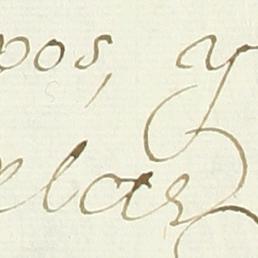 pos, y
elar